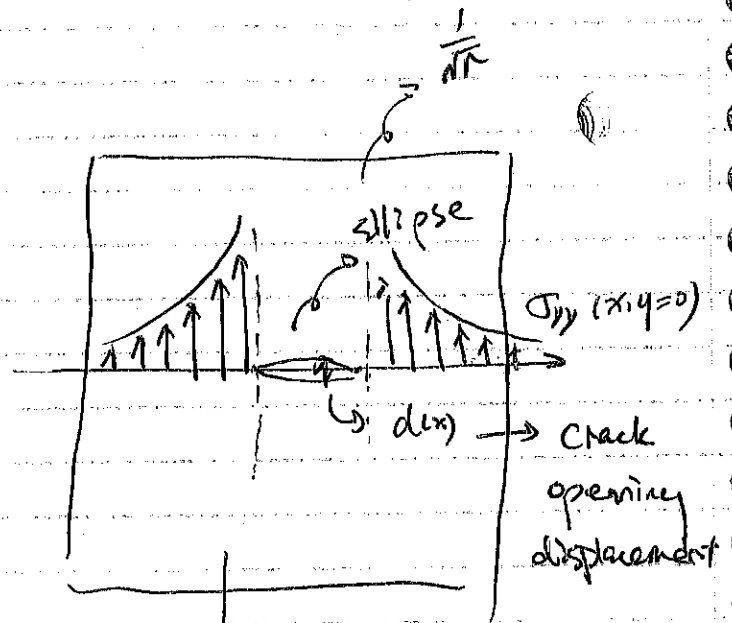 1/√r
ellipse
σyy (x,y=0)
d(x) → Crack
opening
displacement